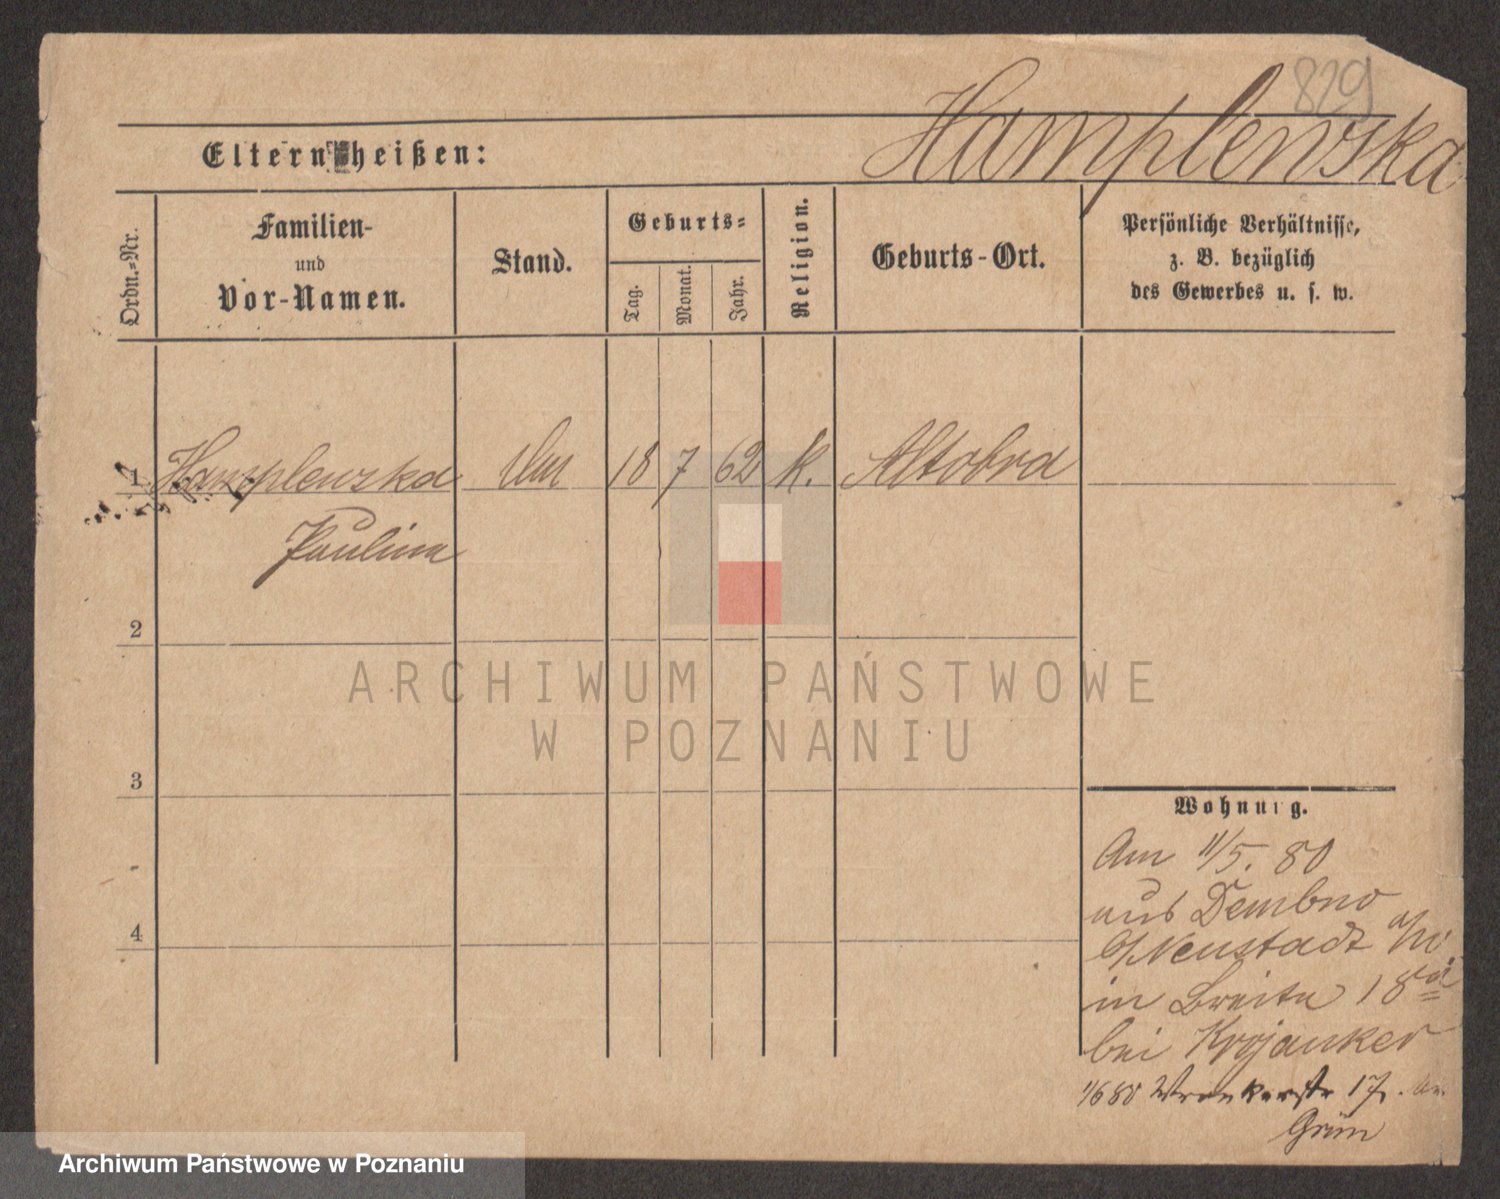 829
Hamplewska
Eltern heißen:
Ordn.-Nr.
Familien-
und
Vor-Namen.
Stand.
Geburts-
Tag.
Monat.
Jahr.
Religion.
Geburts-Ort.
Persönliche Verhältnisse,
z. B. bezüglich
des Gewerbes u. s. w.
1 Hamplewska 18 7 62 k. Altobra
Paulina
2
3
4
Wohnung.
Am 11/5. 80
aus Dembno
b/Neustadt a/W.
in Breite 18a
bei Krojanker
1/6 80 Wronkerstr 17.
Grün
ARCHIWUM PAŃSTWOWE
W POZNANIU
Archiwum Państwowe w Poznaniu